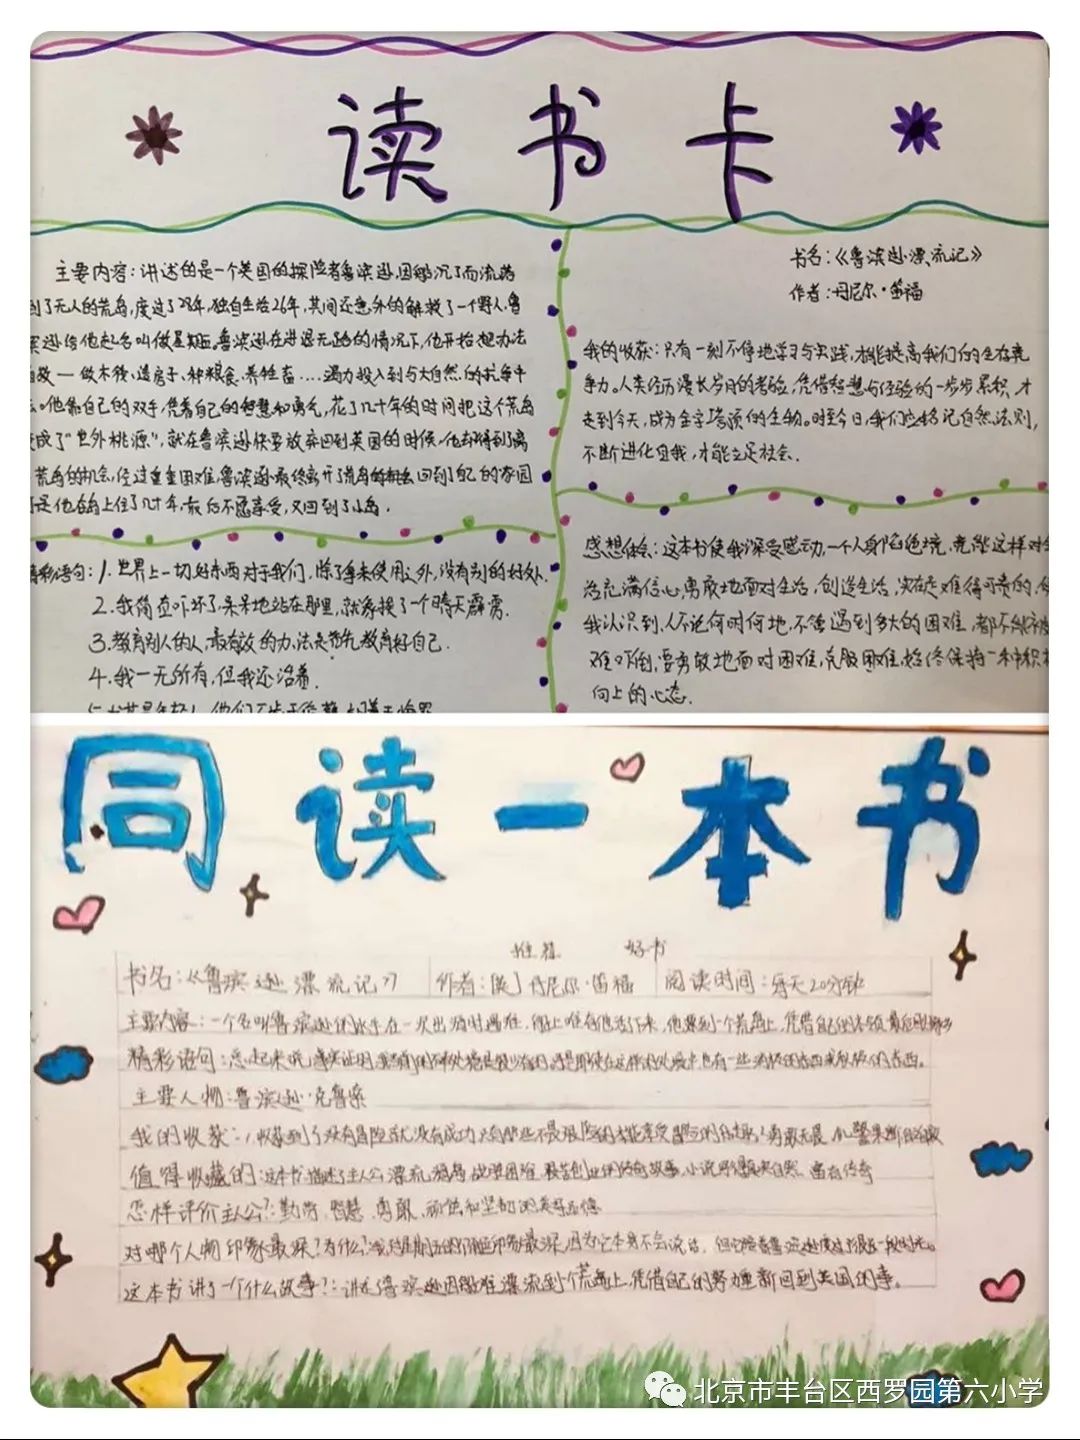 读书卡
主要内容：讲述的是一个英国的探险者鲁滨逊，因船沉了而流落
到了无人的荒岛，度过了28年，独自生活26年，其间还意外的解救了一个野人，鲁
滨逊给他起名叫做星期五。鲁滨逊在进退无路的情况下，他开始想办法
自救—做木筏、造房子、种粮食、养牲畜……竭力投入到与大自然的抗争中
去。他靠自己的双手，凭着自己的智慧和勇气，花了几十年的时间把这个荒岛
变成了"世外桃源"，就在鲁滨逊快要放弃回到英国的时候，他却得到了离
荒岛的机会，经过重重困难，鲁滨逊最终离开荒岛回到了自己的家园
是他在岛上住了几十年，最后不愿享受，又回到了小岛。
精彩语句：1.世界上一切好东西对于我们，除了拿来使用之外，没有别的好处。
2.我简直吓坏了，呆呆地站在那里，就象挨了一个晴天霹雳。
3.教育别人的人，最有效的办法是首先教育好自己。
4.我一无所有，但我还活着。
书名：《鲁滨逊漂流记》
作者：丹尼尔·笛福
我的收获：只有一刻不停地学习与实践，才能提高我们的生存竞
争力。人类经历漫长岁月的考验，凭借智慧与经验的一步步累积，才
走到今天，成为金字塔顶的生物。时至今日，我们应铭记自然法则，
不断进化自我，才能立足社会。
感想体会：这本书使我深受感动，一个人身陷绝境，竟能这样对生
活充满信心，勇敢地面对生活，创造生活，实在是难得可贵的，使
我认识到，人不论何时何地，不管遇到多大的困难，都不能被
难吓倒，要勇敢地面对困难，克服困难，始终保持一种积极
向上的心态。
同读一本书
推荐 好书
书名：《鲁滨逊漂流记》 作者：[英]丹尼尔·笛福 阅读时间：每天20分钟
主要内容：一个名叫鲁滨逊的水手在一次出海时遇难，船上唯有他活下来，他漂到一个荒岛上，凭借自己的
精彩语句：总起来说，事实证明
主要人物：鲁滨逊·克鲁索
我的收获：没有冒险就没有成功
值得收藏的：这本书描述了主人公漂流孤岛，战胜困难，艰苦创业的传奇故事，小说写得真实自然，富有传奇
怎样评价主人公？：勤劳、智慧、勇敢、顽强和坚韧的美好品德
对哪个人物印象最深？为什么？
这本书讲了一个什么故事？：讲述鲁滨逊因船难漂流到一个荒岛上，凭借自己的努力重新回到英国的事。
北京市丰台区西罗园第六小学